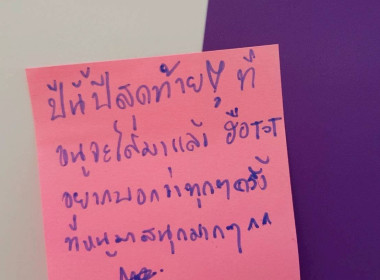 ปีนี้ปีสุดท้ายๆ ที่
หนูจะได้มาแล้ว ฮือTOT
อยากบอกว่าทุกๆครั้ง
ที่หนูมาสนุกมากๆ ^^